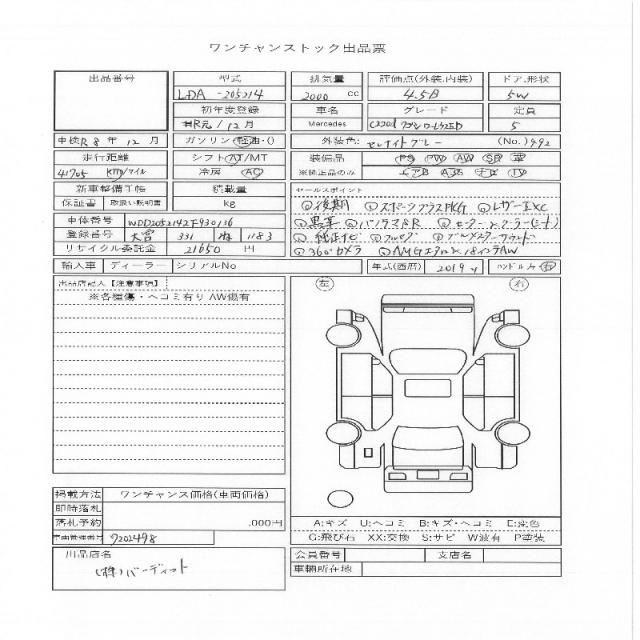 ワンチャンストック出品票
出品番号 型式 排気量 評価点(外装,内装) ドア,形状
LDA -205214 2000 cc 4.5B 5W
初年度登録 車名 グレード 定員
R元 / 12 月 Mercedes 5
車検R 8 年 12 月 ガソリン・軽油・() 外装色: セレナイトグレー (No.) 992
走行距離 シフト AT/MT 装備品 PS PW AW SR 革
41705 km/マイル 冷房 AC ※純正品のみ エアB ナビ TV
新車整備手帳 積載量 セールスポイント
保証書 取扱い説明書 kg ①後期 ②スポーツプラスPKG ③レザーEXC
車体番号 WDD2052142F930136 ④黒革 ⑤パノラマSR
登録番号 大宮 331 1183 ⑦純正ナビ
リサイクル委託金 21650 円 ⑩360°カメラ
輸入車 ディーラー シリアルNo 年式(西暦) 2019 ハンドル 左 右
出品店記入【注意事項】 左 右
※各種傷・ヘコミ有り AW傷有
掲載方法 ワンチャンス価格(車両価格)
即時落札
落札予約 .000円
A:キズ U:ヘコミ B:キズ・ヘコミ E:変色
7202498 G:飛び石 XX:交換 S:サビ W波有 P塗装
出品店名 会員番号 支店名
(株)バーディット 車輌所在地